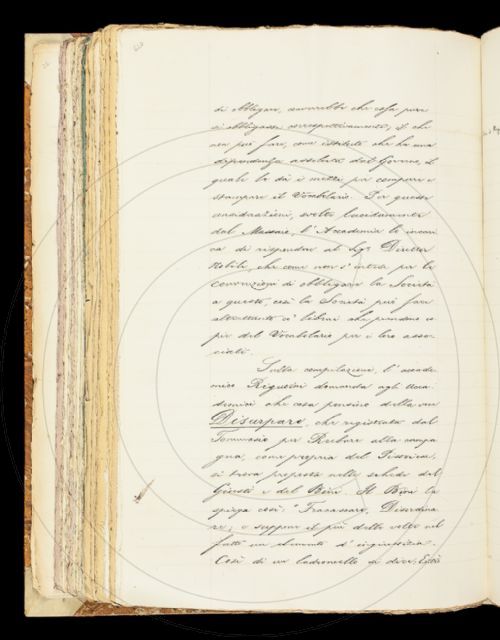 di obbligare, converrebbe che essa pure
si obbligasse corrispettivamente; il che
non può fare, come istituto che ha una
dipendenza assoluta dal Governo, il
quale le dà i mezzi per compire e
stampare il Vocabolario. Per queste
considerazioni, svolte lucidamente
dal Massaio, l'Accademia lo incari
ca di rispondere al Sigr Direttor
Nobili, che come non s'intese per la
convenzione di obbligare la Società
a questo, così la Società può fare
altrettanto co' librai che prendono co
pie del Vocabolario per i loro asso-
ciati.
Sulla compilazione, l'accade
mico Rigutini domanda agli Acca
demici che cosa pensino della voce
Disarpare, che registrata dal
Tommaseo per Rubare alla campa
gna, come propria del
si trova proposta nelle schede del
Giusti e del Bini. Il Bini la
spiega così: Fracassare, Disordina
re; e suppone il più delle volte nel
fatto un elemento d'ingiustizia.
Così di un ladroncello si dice,